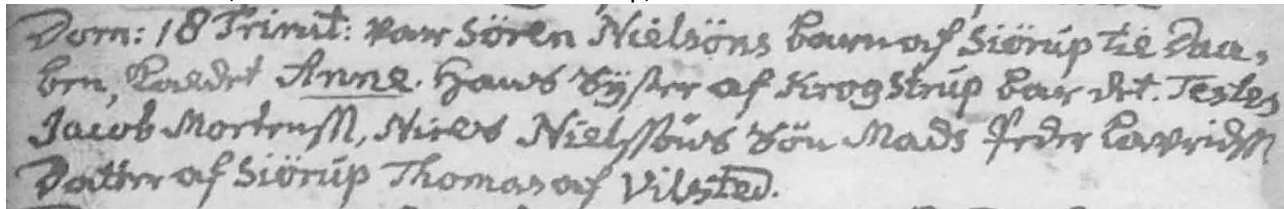 Dom: 18 Trinit: var Sören Nielsöns barn af Siörup til Daa-
ben, kaldet Anne. Hans Syster af Krogstrup bar det. Testes
Jacob Mortenss, Niels Nielssöns Sön Mads Peder Lavridss
Datter af Siörup Thomas af Vilsted.